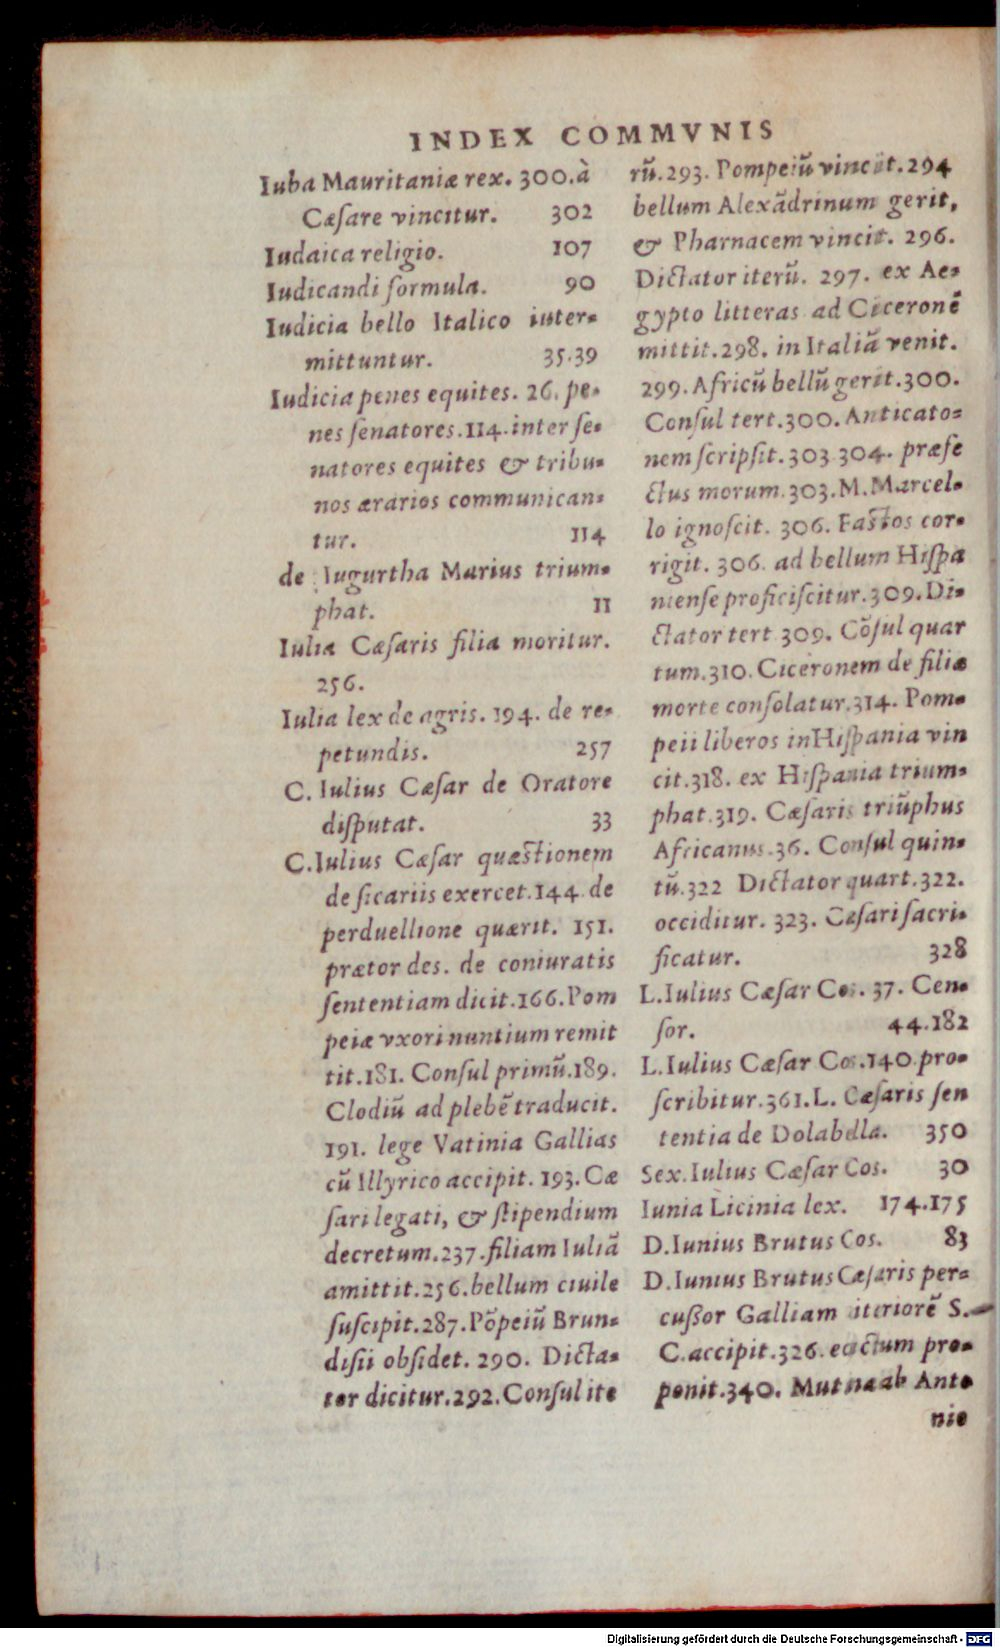 INDEX COMMVNIS
Iuba Mauritaniæ rex. 300. à
Cæſare vincitur. 302
Iudaica religio. 107
Iudicandi formula. 90
Iudicia bello Italico inter-
mittuntur. 35.39
Iudicia penes equites. 26. pe-
nes ſenatores. 114. inter ſe-
natores equites & tribu-
nos ærarios communican-
tur. 114
de Iugurtha Marius trium-
phat. 11
Iulia Cæſaris filia moritur.
256.
Iulia lex de agris. 194. de re-
petundis. 257
C. Iulius Cæſar de Oratore
diſputat. 33
C. Iulius Cæſar quæſtionem
de ſicariis exercet. 144. de
perduellione quærit. 151.
prætor des. de coniuratis
ſententiam dicit. 166. Pom
peiæ vxori nuntium remit
tit. 181. Conſul primũ. 189.
Clodiũ ad plebẽ traducit.
191. lege Vatinia Gallias
cũ Illyrico accipit. 193. Cæ
ſari legati, & ſtipendium
decretum. 237. filiam Iuliã
amittit. 256. bellum ciuile
ſuſcipit. 287. Põpeiũ Brun-
diſii obſidet. 290. Dicta-
tor dicitur. 292. Conſul ite
rũ. 293. Pompeiũ vincit. 294
bellum Alexãdrinum gerit,
& Pharnacem vincit. 296.
Dictator iterũ. 297. ex Ae-
gypto litteras ad Ciceronẽ
mittit. 298. in Italiã venit.
299. Africũ bellũ gerit. 300.
Conſul tert. 300. Anticato-
nem ſcripſit. 303 304. præfe
ctus morum. 303. M. Marcel-
lo ignoſcit. 306. Faſtos cor-
rigit. 306. ad bellum Hiſpa
nienſe proficiſcitur. 309. Di-
ctator tert 309. Cõſul quar
tum. 310. Ciceronem de filiæ
morte conſolatur. 314. Pom-
peii liberos in Hiſpania vin
cit. 318. ex Hiſpania trium-
phat. 319. Cæſaris triũphus
Africanus. 36. Conſul quin-
tũ. 322 Dictator quart. 322.
occiditur. 323. Cæſari ſacri-
ficatur. 328
L. Iulius Cæſar Cos. 37. Cen-
ſor. 44.182
L. Iulius Cæſar Cos. 140. pro-
ſcribitur. 361. L. Cæſaris ſen
tentia de Dolabella. 350
Sex. Iulius Cæſar Cos. 30
Iunia Licinia lex. 174.175
D. Iunius Brutus Cos. 83
D. Iunius Brutus Cæſaris per-
cuſſor Galliam iteriorẽ S.
C. accipit. 326. edictum pro-
ponit. 340. Mutinæ ab Anto
nio
Digitalisierung gefördert durch die Deutsche Forschungsgemeinschaft - DFG